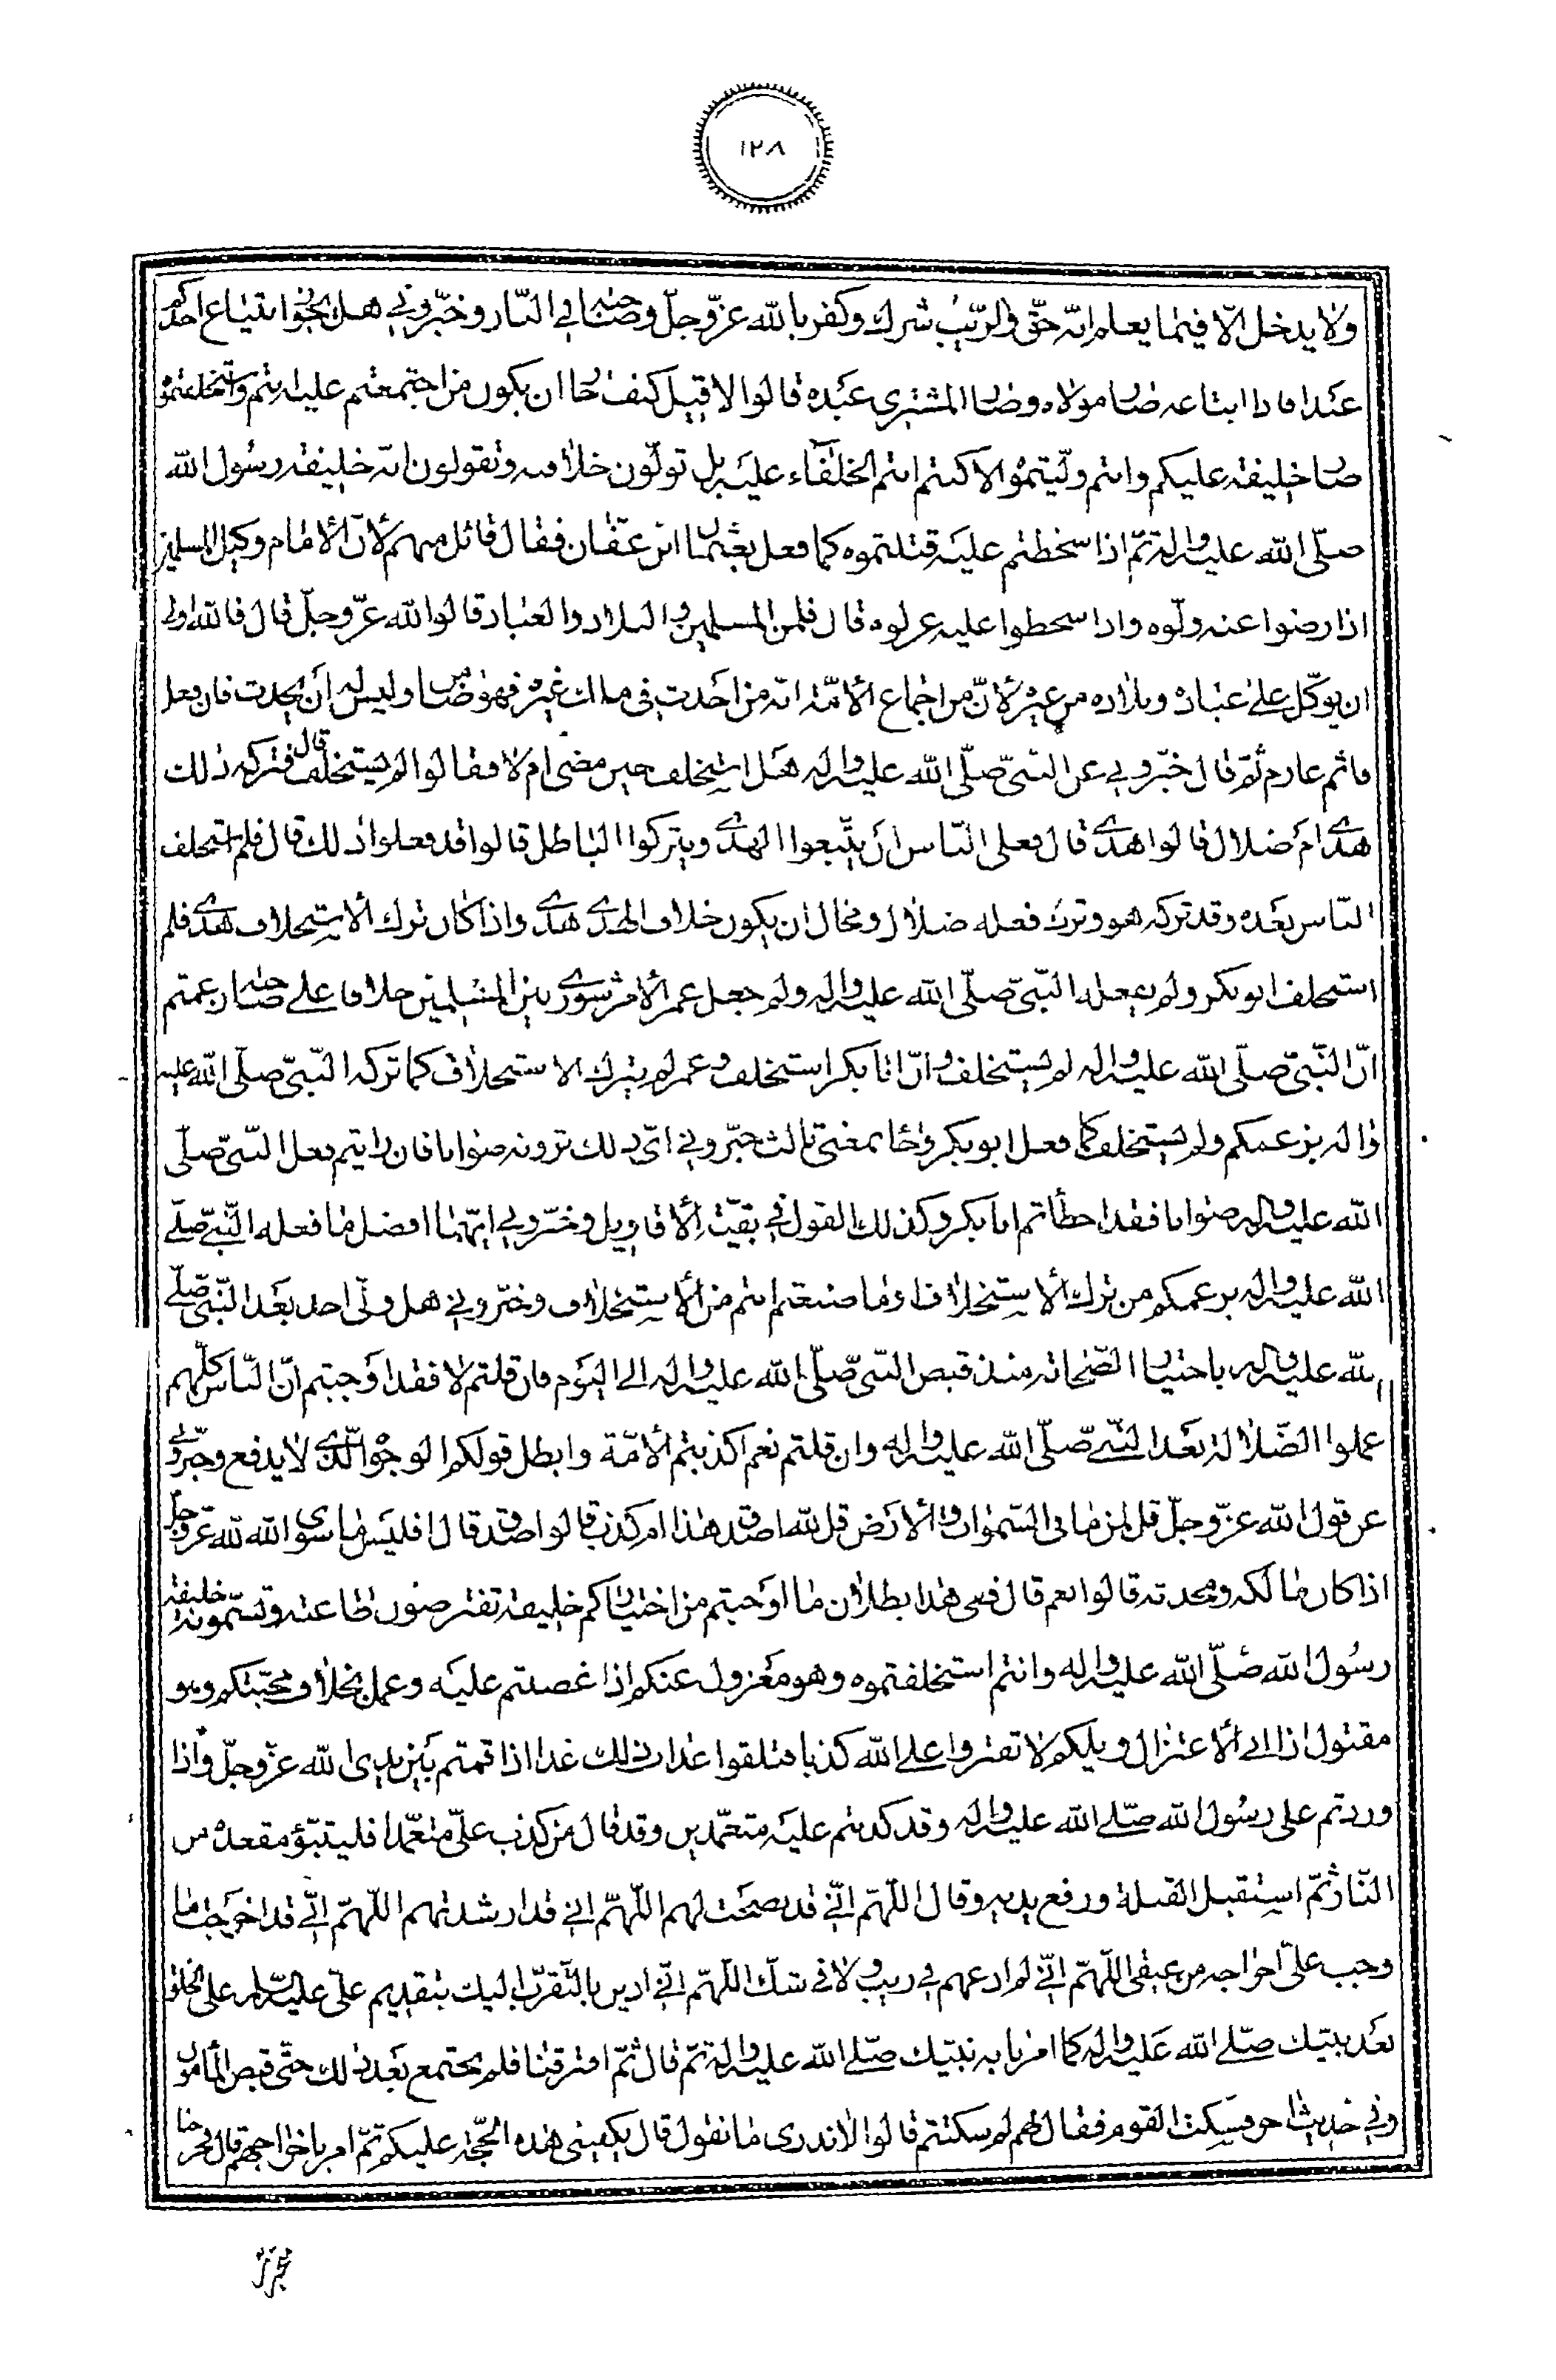 ١٢٨
ولا يدخل الا فيما يعلم انه حق والريب شرك وكفر بالله عز وجل وصاحبه في النار وخبروني هل يجوز ابتياع احدكم
عبدا فاذا ابتاعه صار مولاه وصار المشتري عبده قالوا لا قيل كيف جاز ان يكون من اجتمعتم عليه انتم واستخلفتموه
صار خليفة عليكم وانتم وليتموه الا كنتم انتم الخلفاء عليه بل تولون خليفة وتقولون انه خليفة رسول الله
صلى الله عليه واله ثم اذا سخطتم عليه قتلتموه كما فعل بعثمان ابن عفان فقال قائل منهم لان الامام وكيل المسلمين
اذا رضوا عنه ولوه واذا سخطوا عليه عزلوه قال فلمن المسلمين والبلاد والعباد قالوا لله عز وجل قال فالله اولى
ان يوكل على عباده وبلاده من غيره لان من اجماع الامة انه من احدث في ملك غيره فهو ضامن وليس له ان يحدث فان فعل
فاثم غارم ثم قال خبروني عن النبي صلى الله عليه واله هل استخلف حين مضى ام لا فقالوا لم يستخلف قال فتركه ذلك
هدى ام ضلال قالوا هدى قال فعلى الناس ان يتبعوا الهدى ويتركوا الباطل قالوا قد فعلوا ذلك قال فلم استخلف
الناس بعده وقد تركه هو وترك فعله ضلال ومحال ان يكون خلاف الهدى هدى واذا كان ترك الاستخلاف هدى فلم
استخلف ابو بكر ولم يفعله النبي صلى الله عليه واله ولم جعل عمر الامر شورى بين المسلمين خلافا على صاحبه زعمتم
ان النبي صلى الله عليه واله لم يستخلف وان ابا بكر استخلف وعمر لم يترك الاستخلاف كما تركه النبي صلى الله عليه
واله بزعمكم ولم يستخلف كما فعل ابو بكر وجاء بمعنى ثالث خبروني اي ذلك ترونه صوابا فان رايتم فعل النبي صلى
الله عليه واله صوابا فقد اخطأتم ابا بكر وكذلك القول في بقية الاقاويل وخبروني ايهما افضل ما فعله النبي صلى
الله عليه واله بزعمكم من ترك الاستخلاف او ما صنعتم انتم من الاستخلاف وخبروني هل ولى احد بعد النبي صلى
الله عليه واله باختيار الصحابة منذ قبض النبي صلى الله عليه واله الى اليوم فان قلتم لا فقد اوجبتم ان الناس كلهم
عملوا الضلالة بعد النبي صلى الله عليه واله وان قلتم نعم اكذبتم الامة وابطل قولكم الوجود الذي لا يدفع وخبروني
عن قول الله عز وجل قل لمن ما في السموات والارض قل لله اصدق هذا ام كذب قالوا صدق قال افليس ما سوى الله لله عز وجل
اذا كان مالكه ومحدثه قالوا نعم قال ففي هذا بطلان ما اوجبتم من اختياركم خليفة تفترضون طاعته وتسمونه خليفة
رسول الله صلى الله عليه واله وانتم استخلفتموه وهو معزول عنكم اذا غضبتم عليه وعمل بخلاف محبتكم وهو
مقتول اذا ابى الاعتزال ويلكم لا تفتروا على الله كذبا فتلقوا وبال ذلك غدا اذا قمتم بين يدي الله عز وجل واذا
وردتم على رسول الله صلى الله عليه واله وقد كذبتم عليه متعمدين وقد قال من كذب علي متعمدا فليتبوء مقعده من
النار ثم استقبل القبلة ورفع يديه وقال اللهم اني قد نصحت لهم اللهم اني قد ارشدتهم اللهم اني قد اخرجت ما
وجب علي اخراجه من عنقي اللهم اني لم ادعهم في ريب ولا في شك اللهم اني ادين بالتقرب اليك بتقديم علي عليه السلم على الخلق
بعد نبيك صلى الله عليه واله كما امرنا به نبيك صلى الله عليه واله ثم قال ثم افترقنا فلم نجتمع بعد ذلك حتى قبض المأمون
وفي حديث اخر فسكت القوم فقال لهم لم سكتتم قالوا لا ندري ما نقول قال يكفيني هذه الحجة عليكم ثم امر باخراجهم قال فخرجنا